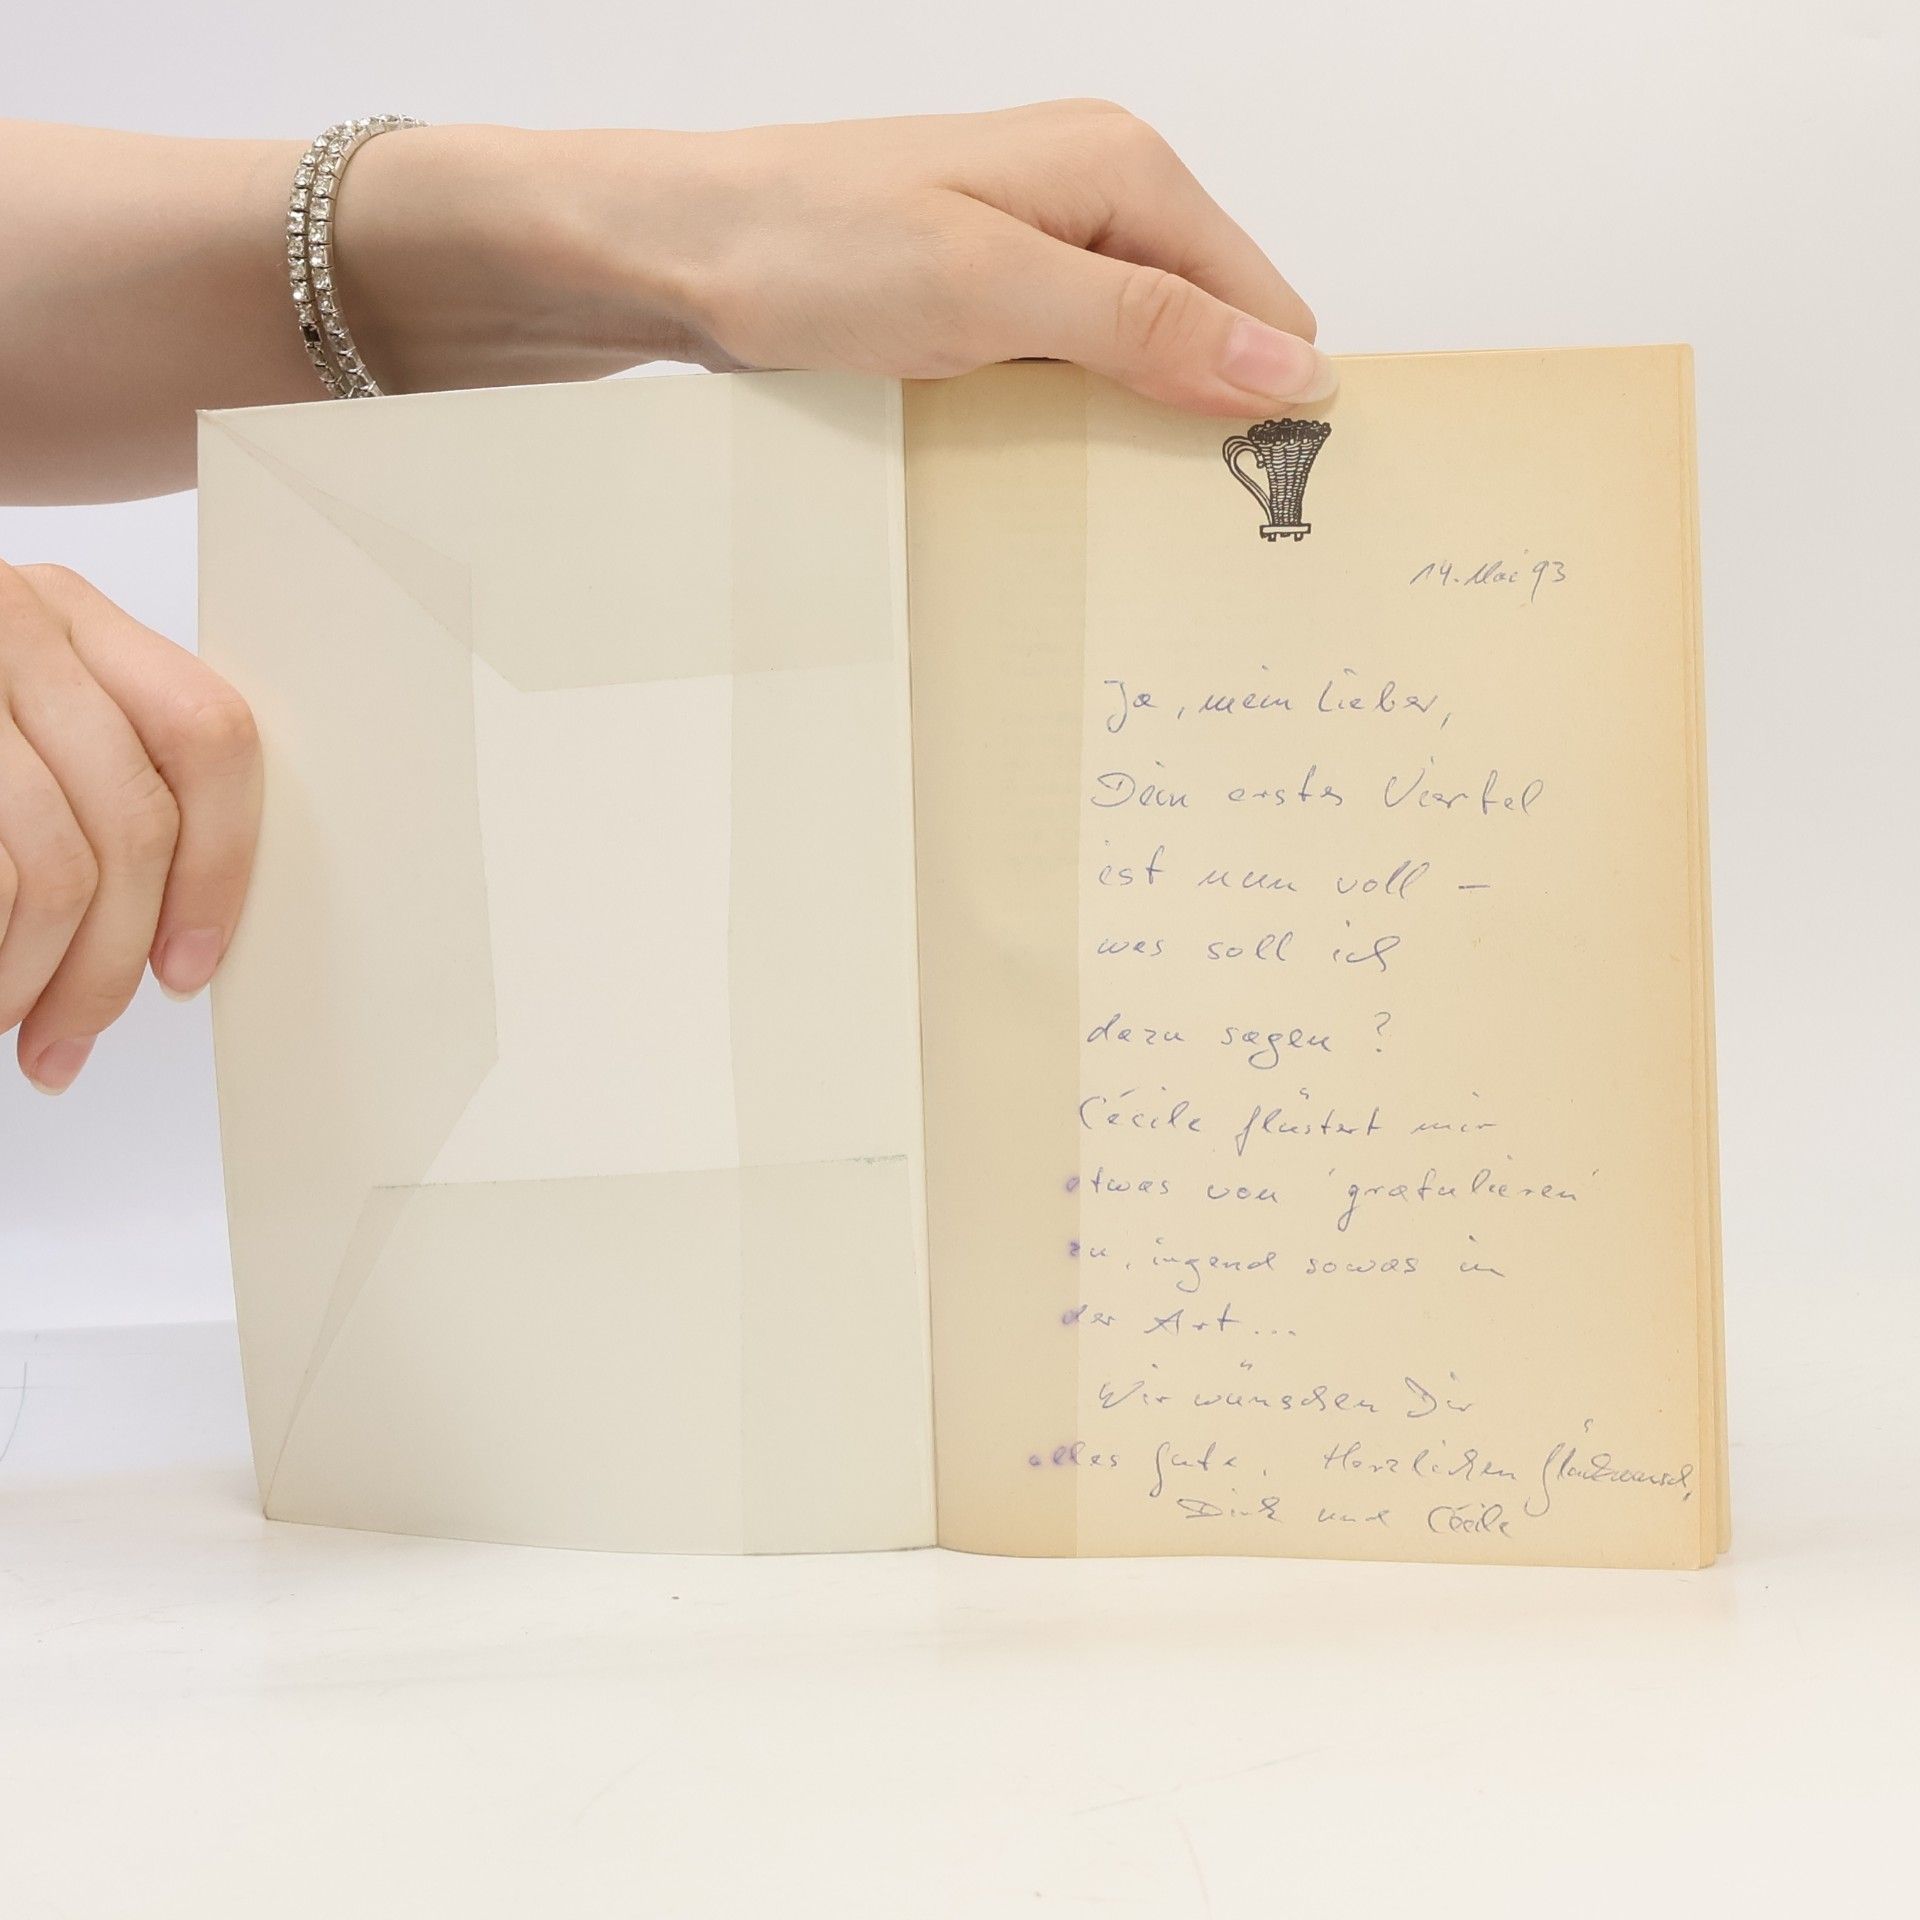 14. Mai 93
Ja, mein Lieber,
Dein erstes Viertel
ist nun voll –
was soll ich
dazu sagen?
Cécile flüstert mir
etwas von 'gratulieren'
zu, irgend sowas in
der Art...
Wir wünschen Dir
alles Gute. Herzlichen Glückwunsch,
Dirk und Cécile